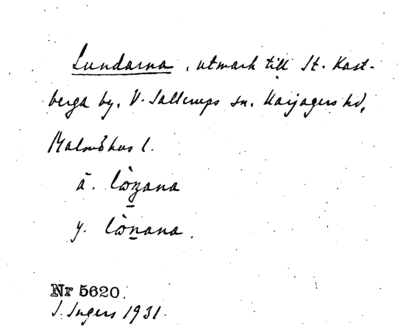 Lundarna, utmark till St. Kast-
berga by, V. Sallerups sn. Harjagers hd,
Malmöhus l.
ä. lòṉana
y. lòṉana.
Nr 5620.
I. Ingers 1931.